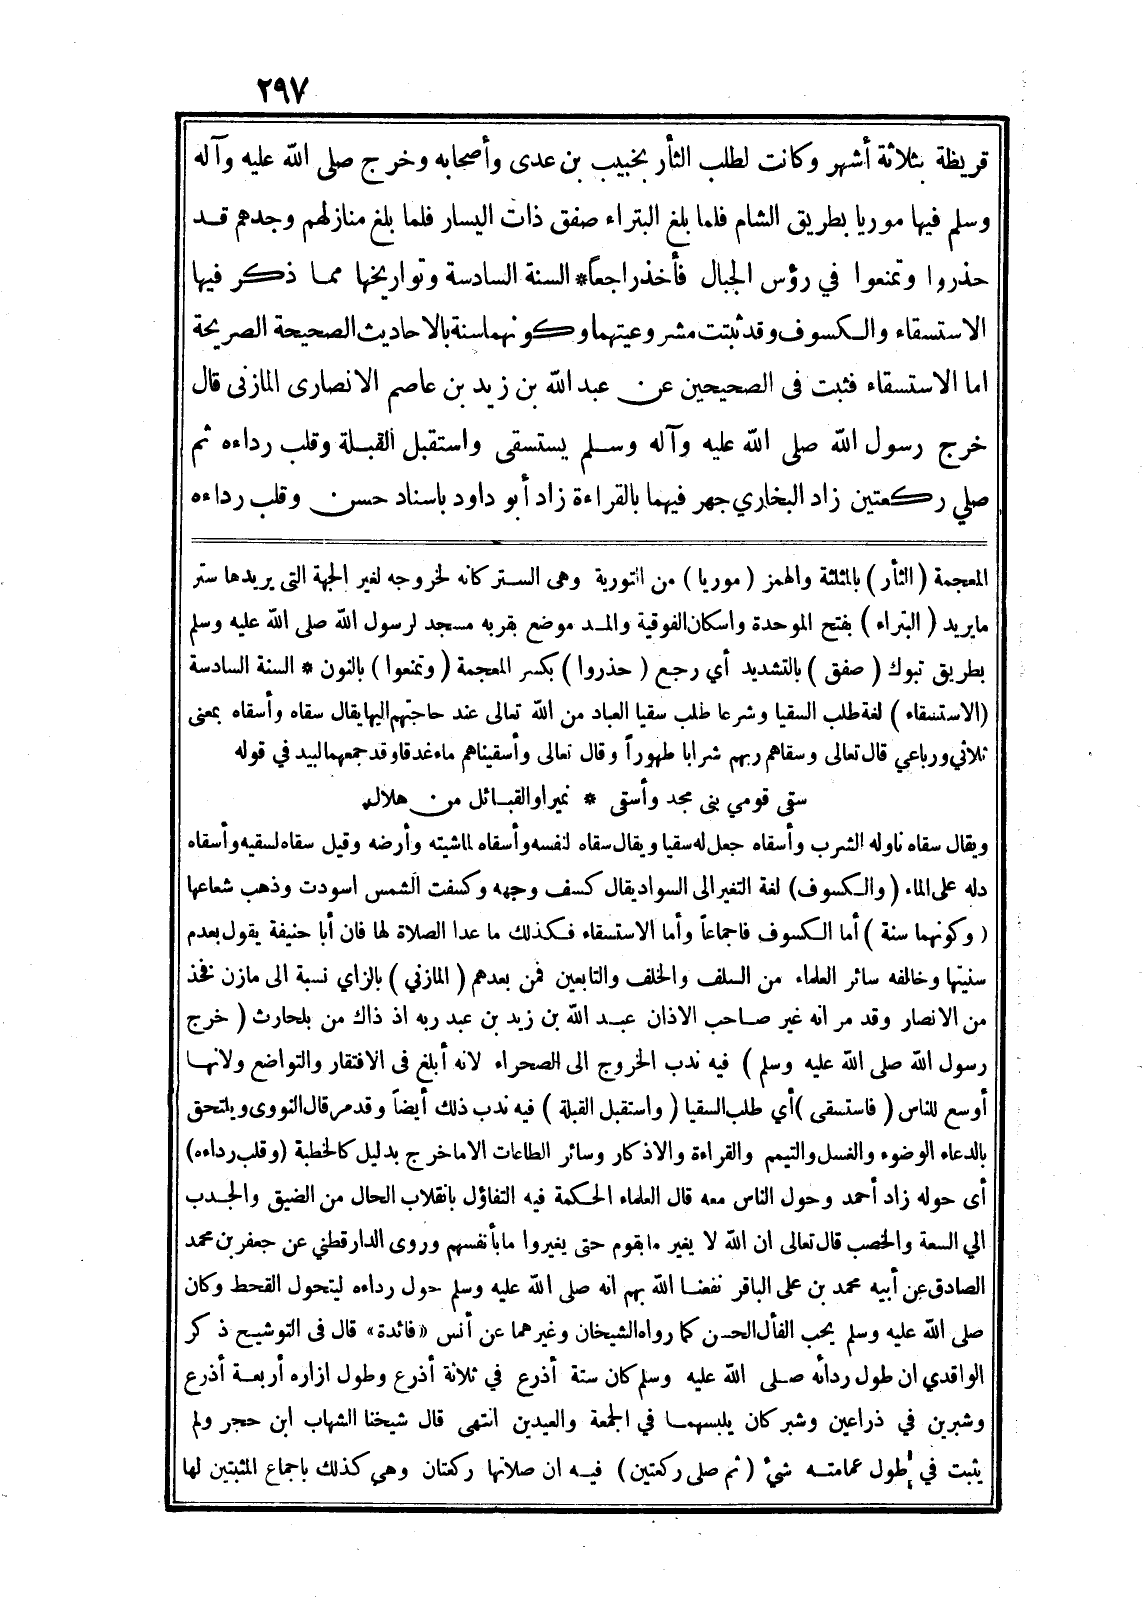 ٢٩٧
قريظة بثلاثة أشهر وكانت لطلب الثأر بخبيب بن عدى وأصحابه وخرج صلى الله عليه وآله
وسلم فيها موريا بطريق الشام فلما بلغ البتراء صفق ذات اليسار فلما بلغ منازلهم وجدهم قد
حذروا وتمنعوا في رؤس الجبال فأخذ راجعاً* السنة السادسة وتواريخها مما ذكر فيها
الاستسقاء والكسوف وقد ثبتت مشروعيتهما وكونهما سنة بالاحاديث الصحيحة الصريحة
اما الاستسقاء فثبت فى الصحيحين عن عبد الله بن زيد بن عاصم الانصارى المازنى قال
خرج رسول الله صلى الله عليه وآله وسلم يستسقى واستقبل القبلة وقلب رداءه ثم
صلي ركعتين زاد البخاري جهر فيهما بالقراءة زاد أبو داود باسناد حسن وقلب رداءه
المعجمة (الثأر) بالمثلثة والهمز (موريا) من التورية وهى الستر كانه لخروجه لغير الجهة التى يريدها ستر
مايريد (البتراء) بفتح الموحدة واسكان الفوقية والمد موضع بقربه مسجد لرسول الله صلى الله عليه وسلم
بطريق تبوك (صفق) بالتشديد أي رجع (حذروا) بكسر المعجمة (وتمنعوا) بالنون * السنة السادسة
(الاستسقاء) لغة طلب السقيا وشرعا طلب سقيا العباد من الله تعالى عند حاجتهم اليها يقال سقاه وأسقاه بمعنى
ثلاثي ورباعي قال تعالى وسقاهم ربهم شرابا طهوراً وقال تعالى وأسقيناهم ماء غدقا وقد جمعهما لبيد في قوله
سقى قومي بنى مجد وأسقى * نميرا والقبائل من هلال
ويقال سقاه ناوله الشرب وأسقاه جعل له سقيا ويقال سقاه لنفسه وأسقاه لماشيته وأرضه وقيل سقاه لسقيه وأسقاه
دله على الماء (والكسوف) لغة التغير الى السواد يقال كسف وجهه وكسفت الشمس اسودت وذهب شعاعها
(وكونهما سنة) أما الكسوف فاجماعاً وأما الاستسقاء فكذلك ما عدا الصلاة لها فان أبا حنيفة يقول بعدم
سنيتها وخالفه سائر العلماء من السلف والخلف والتابعين فمن بعدهم (المازني) بالزاي نسبة الى مازن فخذ
من الانصار وقد مر انه غير صاحب الاذان عبد الله بن زيد بن عبد ربه اذ ذاك من بلحارث (خرج
رسول الله صلى الله عليه وسلم) فيه ندب الخروج الى الصحراء لانه أبلغ فى الافتقار والتواضع ولانها
أوسع للناس (فاستسقى) أي طلب السقيا (واستقبل القبلة) فيه ندب ذلك أيضاً وقد مر قال النووى ويلتحق
بالدعاء الوضوء والغسل والتيمم والقراءة والاذكار وسائر الطاعات الا ماخرج بدليل كالخطبة (وقلب رداءه)
أى حوله زاد أحمد وحول الناس معه قال العلماء الحكمة فيه التفاؤل بانقلاب الحال من الضيق والجدب
الي السعة والخصب قال تعالى ان الله لا يغير مابقوم حتى يغيروا مابأنفسهم وروى الدارقطني عن جعفر بن محمد
الصادق عن أبيه محمد بن على الباقر نفعنا الله بهم انه صلى الله عليه وسلم حول رداءه ليتحول القحط وكان
صلى الله عليه وسلم يحب الفأل الحسن كما رواه الشيخان وغيرهما عن أنس «فائدة» قال فى التوشيح ذكر
الواقدي ان طول ردائه صلى الله عليه وسلم كان ستة أذرع في ثلاثة أذرع وطول ازاره أربعة أذرع
وشبرين في ذراعين وشبر كان يلبسهما في الجمعة والعيدين انتهى قال شيخنا الشهاب ابن حجر ولم
يثبت في طول عمامته شيء (ثم صلى ركعتين) فيه ان صلاتها ركعتان وهي كذلك باجماع المثبتين لها